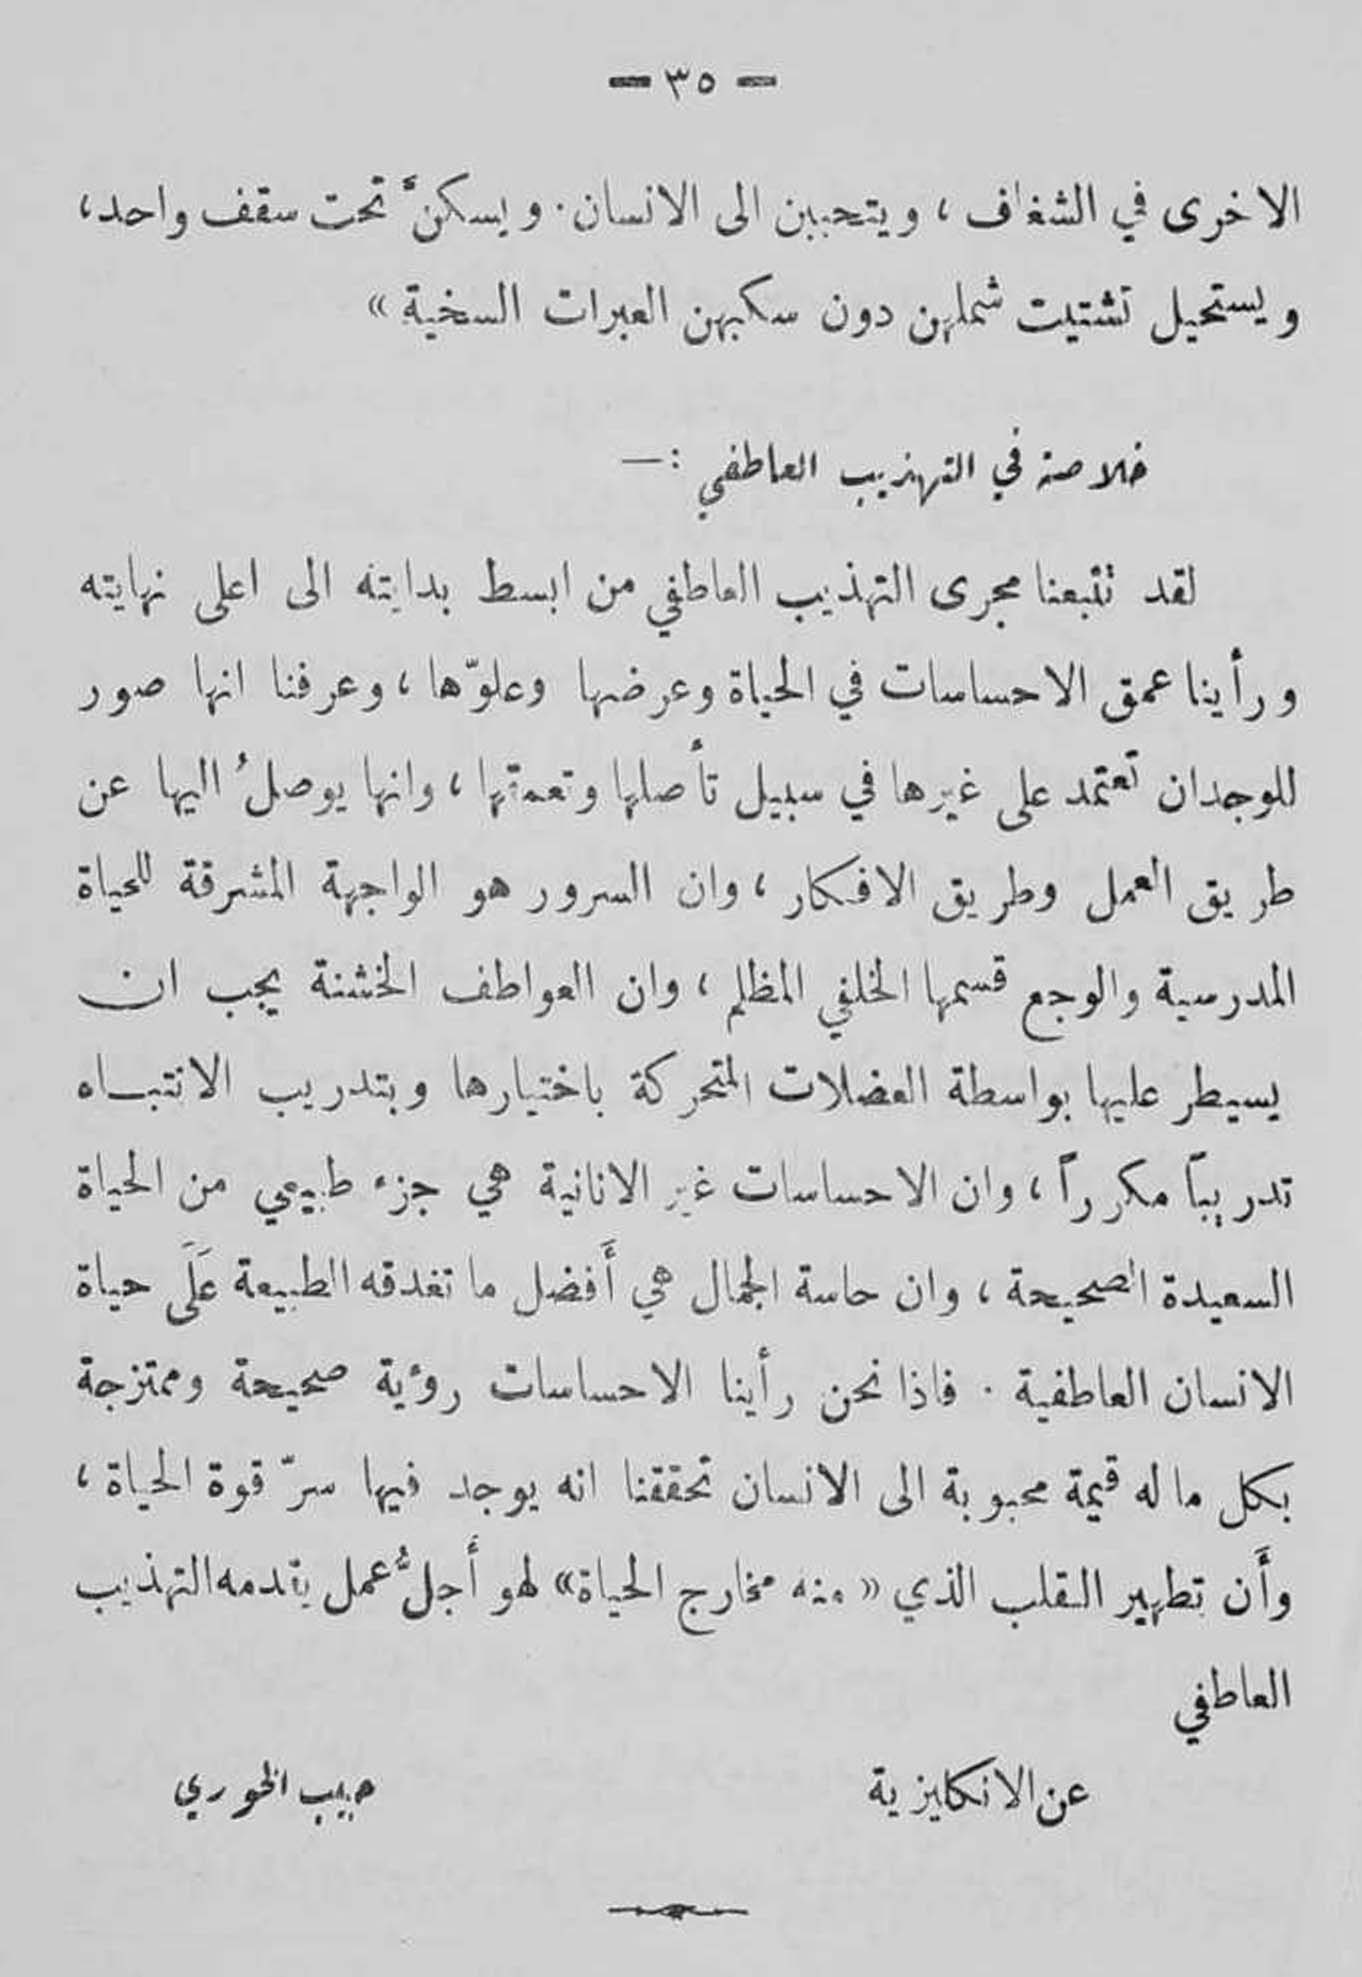 — ٣٥ —
الاخرى في الشغاف ، ويتحببن الى الانسان . ويسكنَّ تحت سقف واحد،
ويستحيل تشتيت شملهن دون سكبهن العبرات السخية »
خلاصة في التهذيب العاطفي : —
لقد تتبعنا مجرى التهذيب العاطفي من ابسط بدايته الى اعلى نهايته
ورأينا عمق الاحساسات في الحياة وعرضها وعلوّها ، وعرفنا انها صور
للوجدان تعتمد على غيرها في سبيل تأصلها وتعمقها ، وانها يوصلُ اليها عن
طريق العمل وطريق الافكار ، وان السرور هو الواجهة المشرقة للحياة
المدرسية والوجع قسمها الخلفي المظلم ، وان العواطف الخشنة يجب ان
يسيطر عليها بواسطة العضلات المتحركة باختيارها وبتدريب الانتباه
تدريباً مكرراً ، وان الاحساسات غير الانانية هي جزء طبيعي من الحياة
السعيدة الصحيحة ، وان حاسة الجمال هي أَفضل ما تغدقه الطبيعة عَلَى حياة
الانسان العاطفية . فاذا نحن رأينا الاحساسات رؤية صحيحة وممتزجة
بكل ما له قيمة محبوبة الى الانسان تحققنا انه يوجد فيها سرّ قوة الحياة ،
وأَن تطهير القلب الذي « منه مخارج الحياة» لهو أَجلُّ عمل يقدمه التهذيب
العاطفي
عن الانكليزية حبيب الخوري